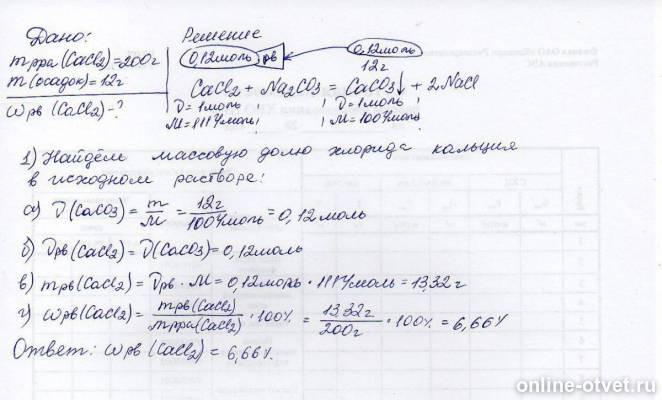 Дано:
mр-ра (CaCl2)=200г
m(осадок)=12г
ωрв (CaCl2)-?
Решение
0,12моль рв 0,12моль
12г
CaCl2 + Na2CO3 = CaCO3↓ + 2NaCl
ν=1моль ν=1моль
M=111г/моль M=100г/моль
1) Найдём массовую долю хлорида кальция
в исходном растворе:
а) ν(CaCO3)=m/M=12г/100г/моль=0,12моль
б) νрв(CaCl2)=ν(CaCO3)=0,12моль
в) mрв(CaCl2)=νрв·M=0,12моль·111г/моль=13,32г
г) ωрв(CaCl2)=mрв(CaCl2)/mр-ра(CaCl2)·100%=13,32г/200г·100%=6,66%
Ответ: ωрв (CaCl2)=6,66%.
online-otvet.ru